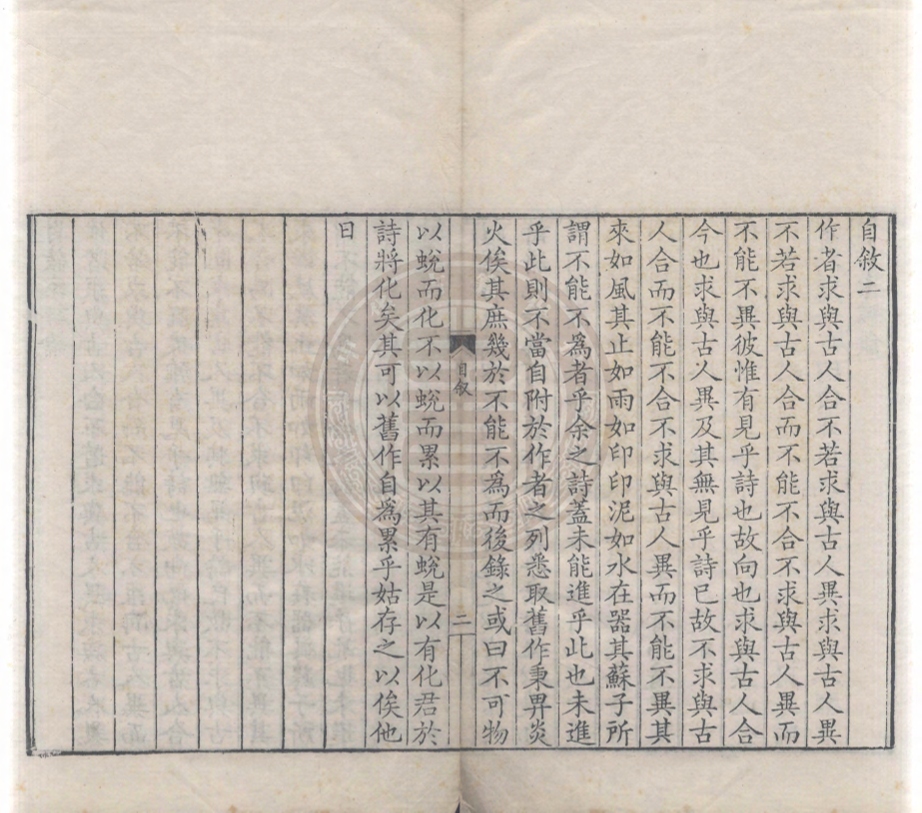 自敘二
作者求與古人合不若求與古人異求與古人異
不若求與古人合而不能不合不求與古人異而
不能不異彼惟有見乎詩也故向也求與古人合
今也求與古人異及其無見乎詩已故不求與古
人合而不能不合不求與古人異而不能不異其
來如風其止如雨如印印泥如水在器其蘇子所
謂不能不為者乎余之詩蓋未能進乎此也未進
乎此則不當自附於作者之列悉取舊作秉畀炎
火俟其庶幾於不能不為而後錄之或曰不可物
自敘
二
以蛻而化不以蛻而累以其有蛻是以有化君於
詩將化矣其可以舊作自為累乎姑存之以俟他
日